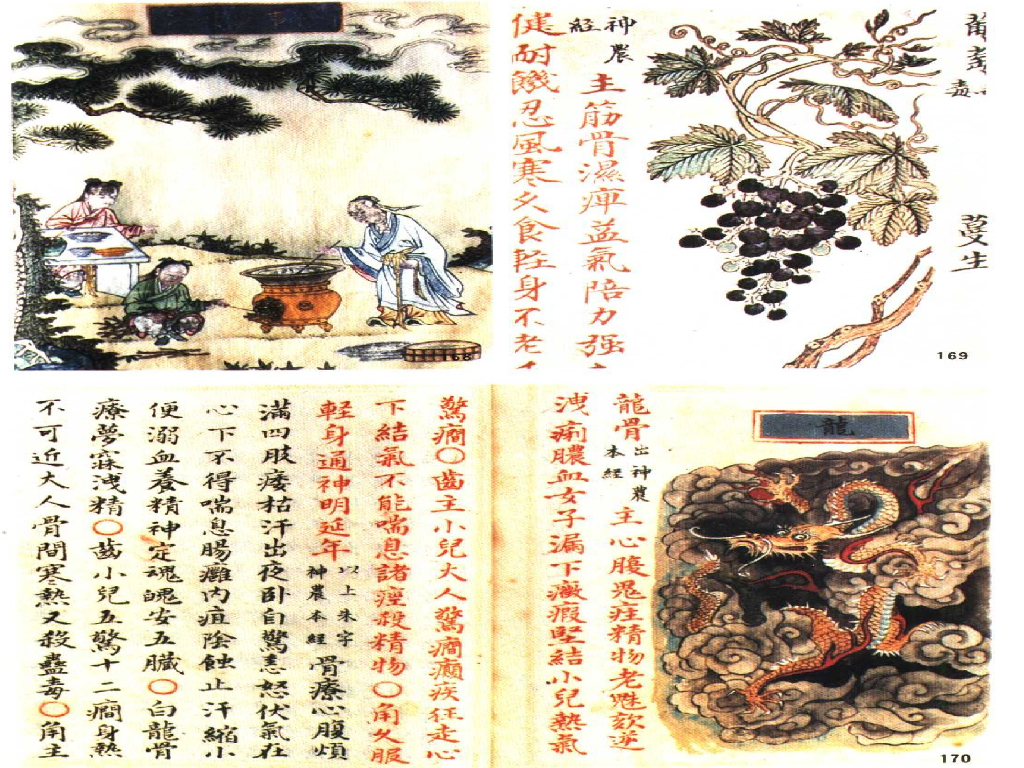 168
蔓生
神農
經
主筋骨濕痺益氣陪力强
健耐饑忍風寒久食輕身不老
169
龍
龍骨 出神農本經 主心腹鬼疰精物老魅欬逆
洩痢膿血女子漏下癥瘕堅結小兒熱氣
驚癎○齒主小兒大人驚癎癲疾狂走心
下結氣不能喘息諸痙殺精物○角久服
軽身通神明延年 以上朱字神農本經 骨療心腹煩
滿四肢痿枯汗出夜卧自驚恚怒伏氣在
心下不得喘息腸癰内疽陰蝕止汗縮小
便溺血養精神定魂魄安五臓○白龍骨
療夢寐洩精○齒小兒五驚十二癎身熱
不可近大人骨間寒熱又殺蠱毒○角主
170